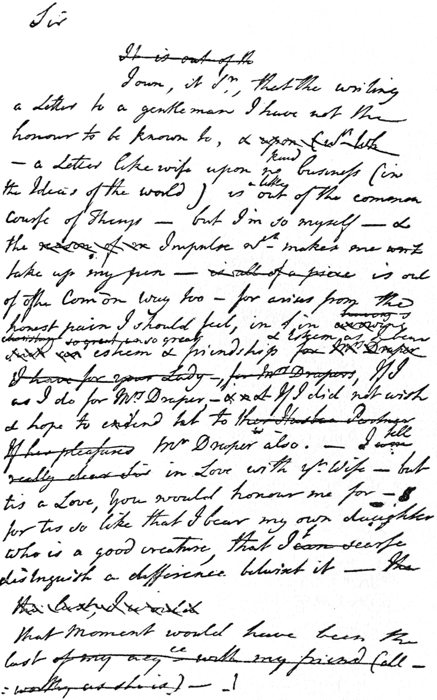 Sir
It is out of th
I own, it Sr, that the writing
a Letter to a gentleman I have not the
honour to be known to, & upon
kind
– a Letter likewise upon no business (in
alike
the Ideas of the world) is out of the common
Course of Things – but I'm so myself – &
the Impulse wch makes me
take up my pen – is all of a piece is out
of the Common way too – for arises from the
having
honest pain I should feel, in so great
esteem & friendship for Mrs Draper
I have for your Lady, for Mrs Draper, If I
as I do for Mrs Draper – If I did not wish
& hope to extend it to
If he pleased Mr Draper also. – I
tell
really dear Sir in Love with yr Wife – but
tis a Love, You would honour me for –
for tis so like that I bear my own daughter
who is a good creature, that I can scarse
distinguish a difference betwixt it – The
the last, I would
that Moment would have been the
last of my acqce with my friend (all-
:worthy as she is) – !